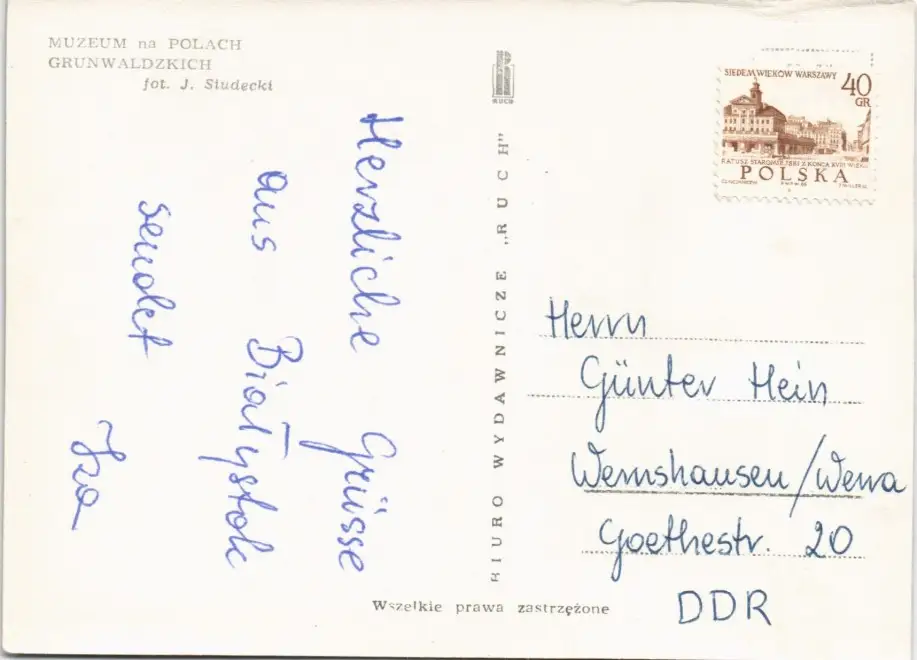 MUZEUM na POLACH
GRUNWALDZKICH
fot. J. Studecki
Herzliche Grüsse
aus Białystok
sendet
Iza
RUCH
BIURO WYDAWNICZE „RUCH"
Wszelkie prawa zastrzeżone
SIEDEM WIEKÓW WARSZAWY
40
GR
RATUSZ STAROMIEJSKI Z KOŃCA XVIII WIEKU
POLSKA
Herrn
Günter Hein
Wernshausen/Werra
Goethestr. 20
DDR